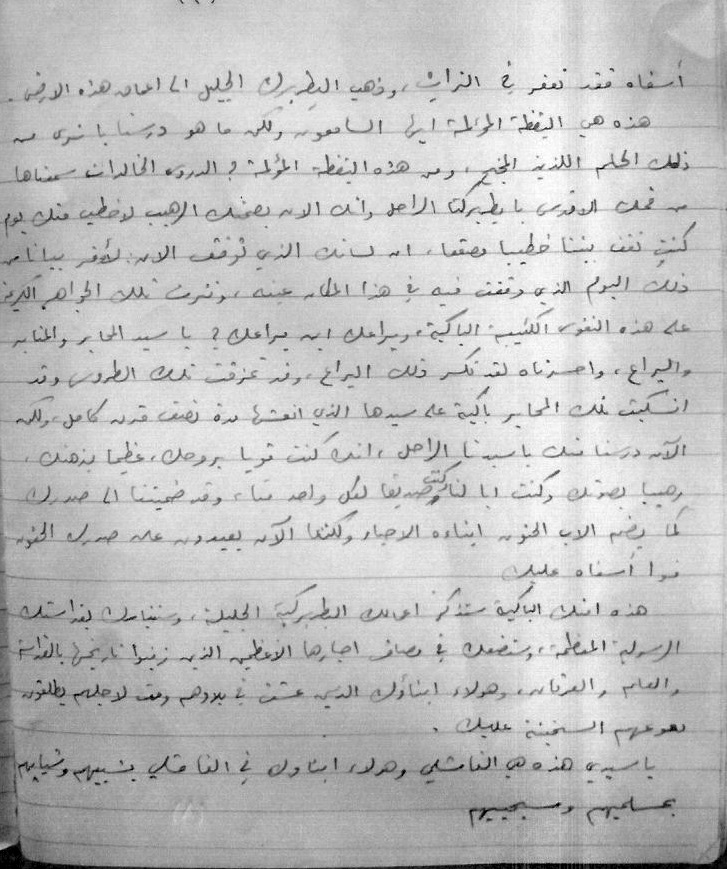 أسفاه فقد تعفر في التراب، وذهب البطريرك الجليل الى اعماق هذه الارض.
هذه هي اليقظة المؤلمة ايها السامعون ولكن ما هو درسنا يا ترى من
ذلك الحلم اللذيذ المجنح، ومن هذه اليقظة المؤلمة ؟ الدروس الخالدات سمعناها
من فمك الاقدس يا بطريركنا الراحل وانك الان بصمتك الرهيب لاخطب منك يوم
كنت تقف بيننا خطيبا مصقعا، ان لسانك الذي توقف الان لأوفر بيانا من
ذلك اليوم الذي وقفت فيه في هذا المكان عينه، ونثرت تلك الجواهر الكريمة
على هذه النفوس الكئيبة الباكية، ويراعك اين يراعك ؟ يا سيد المحابر والمنابر
واليراع، واحسرتاه لقد تكسر ذلك اليراع، وقد تمزقت تلك الطروس وقد
انسكبت تلك المحابر باكية على سيدها الذي انعشها مدة نصف قرن كامل، ولكن
الآن درسنا منك يا سيدنا الراحل، انك كنت قويا بروحك، عظيما بذهنك،
رهيبا بصوتك وكنت ابا لنا وكنت صديقا لكل واحد منا، وقد ضممتنا الى صدرك
كما يضم الاب الحنون ابناءه الاحباء ولكننا الآن بعيدون عن صدرك الحنون
فوا أسفاه عليك
هذه امتك الباكية ستذكر اعمالك البطريركية الجليلة، وستنادي بقداستك
الرسولية المعظمة، وستضعك في مصاف احبارها الاعظمين الذين زينوا تاريخها بالقداسة
والعلم والعرفان، وهولاء ابناؤك الذين عشت في بلادهم ومت لاجلهم يطلقون
دموعهم السخينة عليك .
يا سيدي هذه هي القامشلي وهولاء ابناؤك في القامشلي بشيبهم وشبابهم
بمسلميهم ومسيحييهم